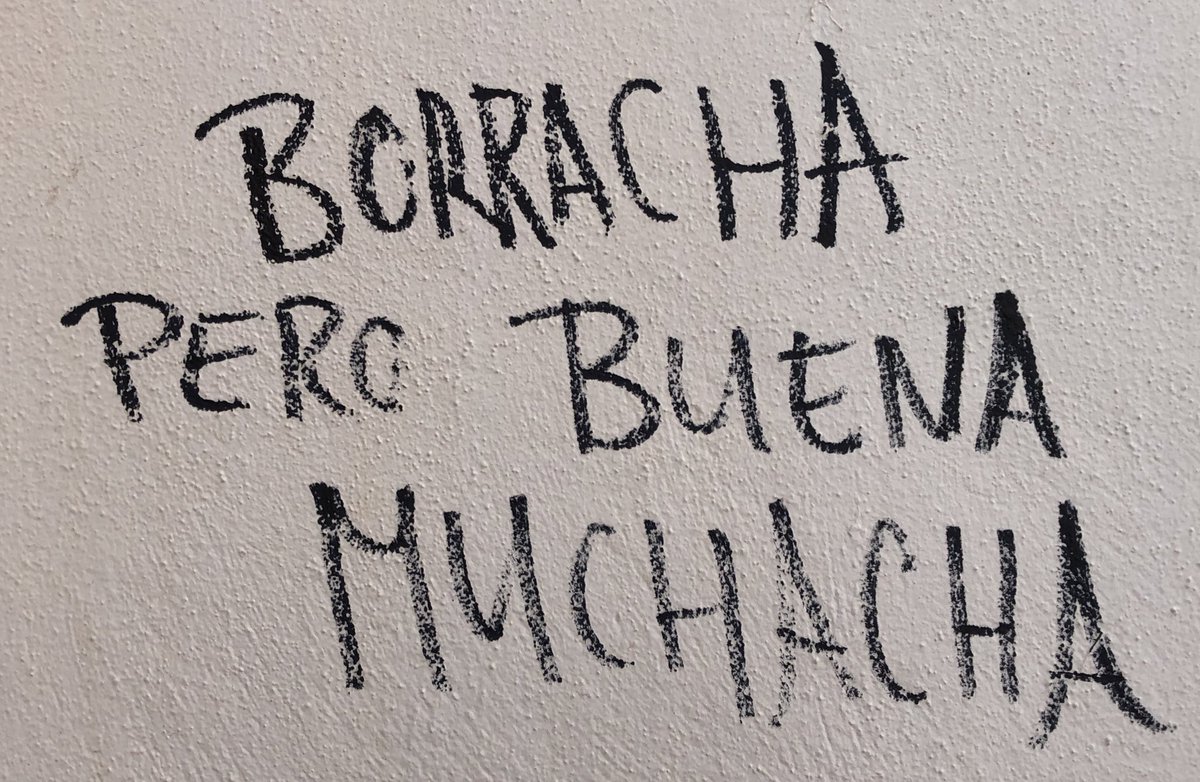 BORRACHA
PERO BUENA
MUCHACHA